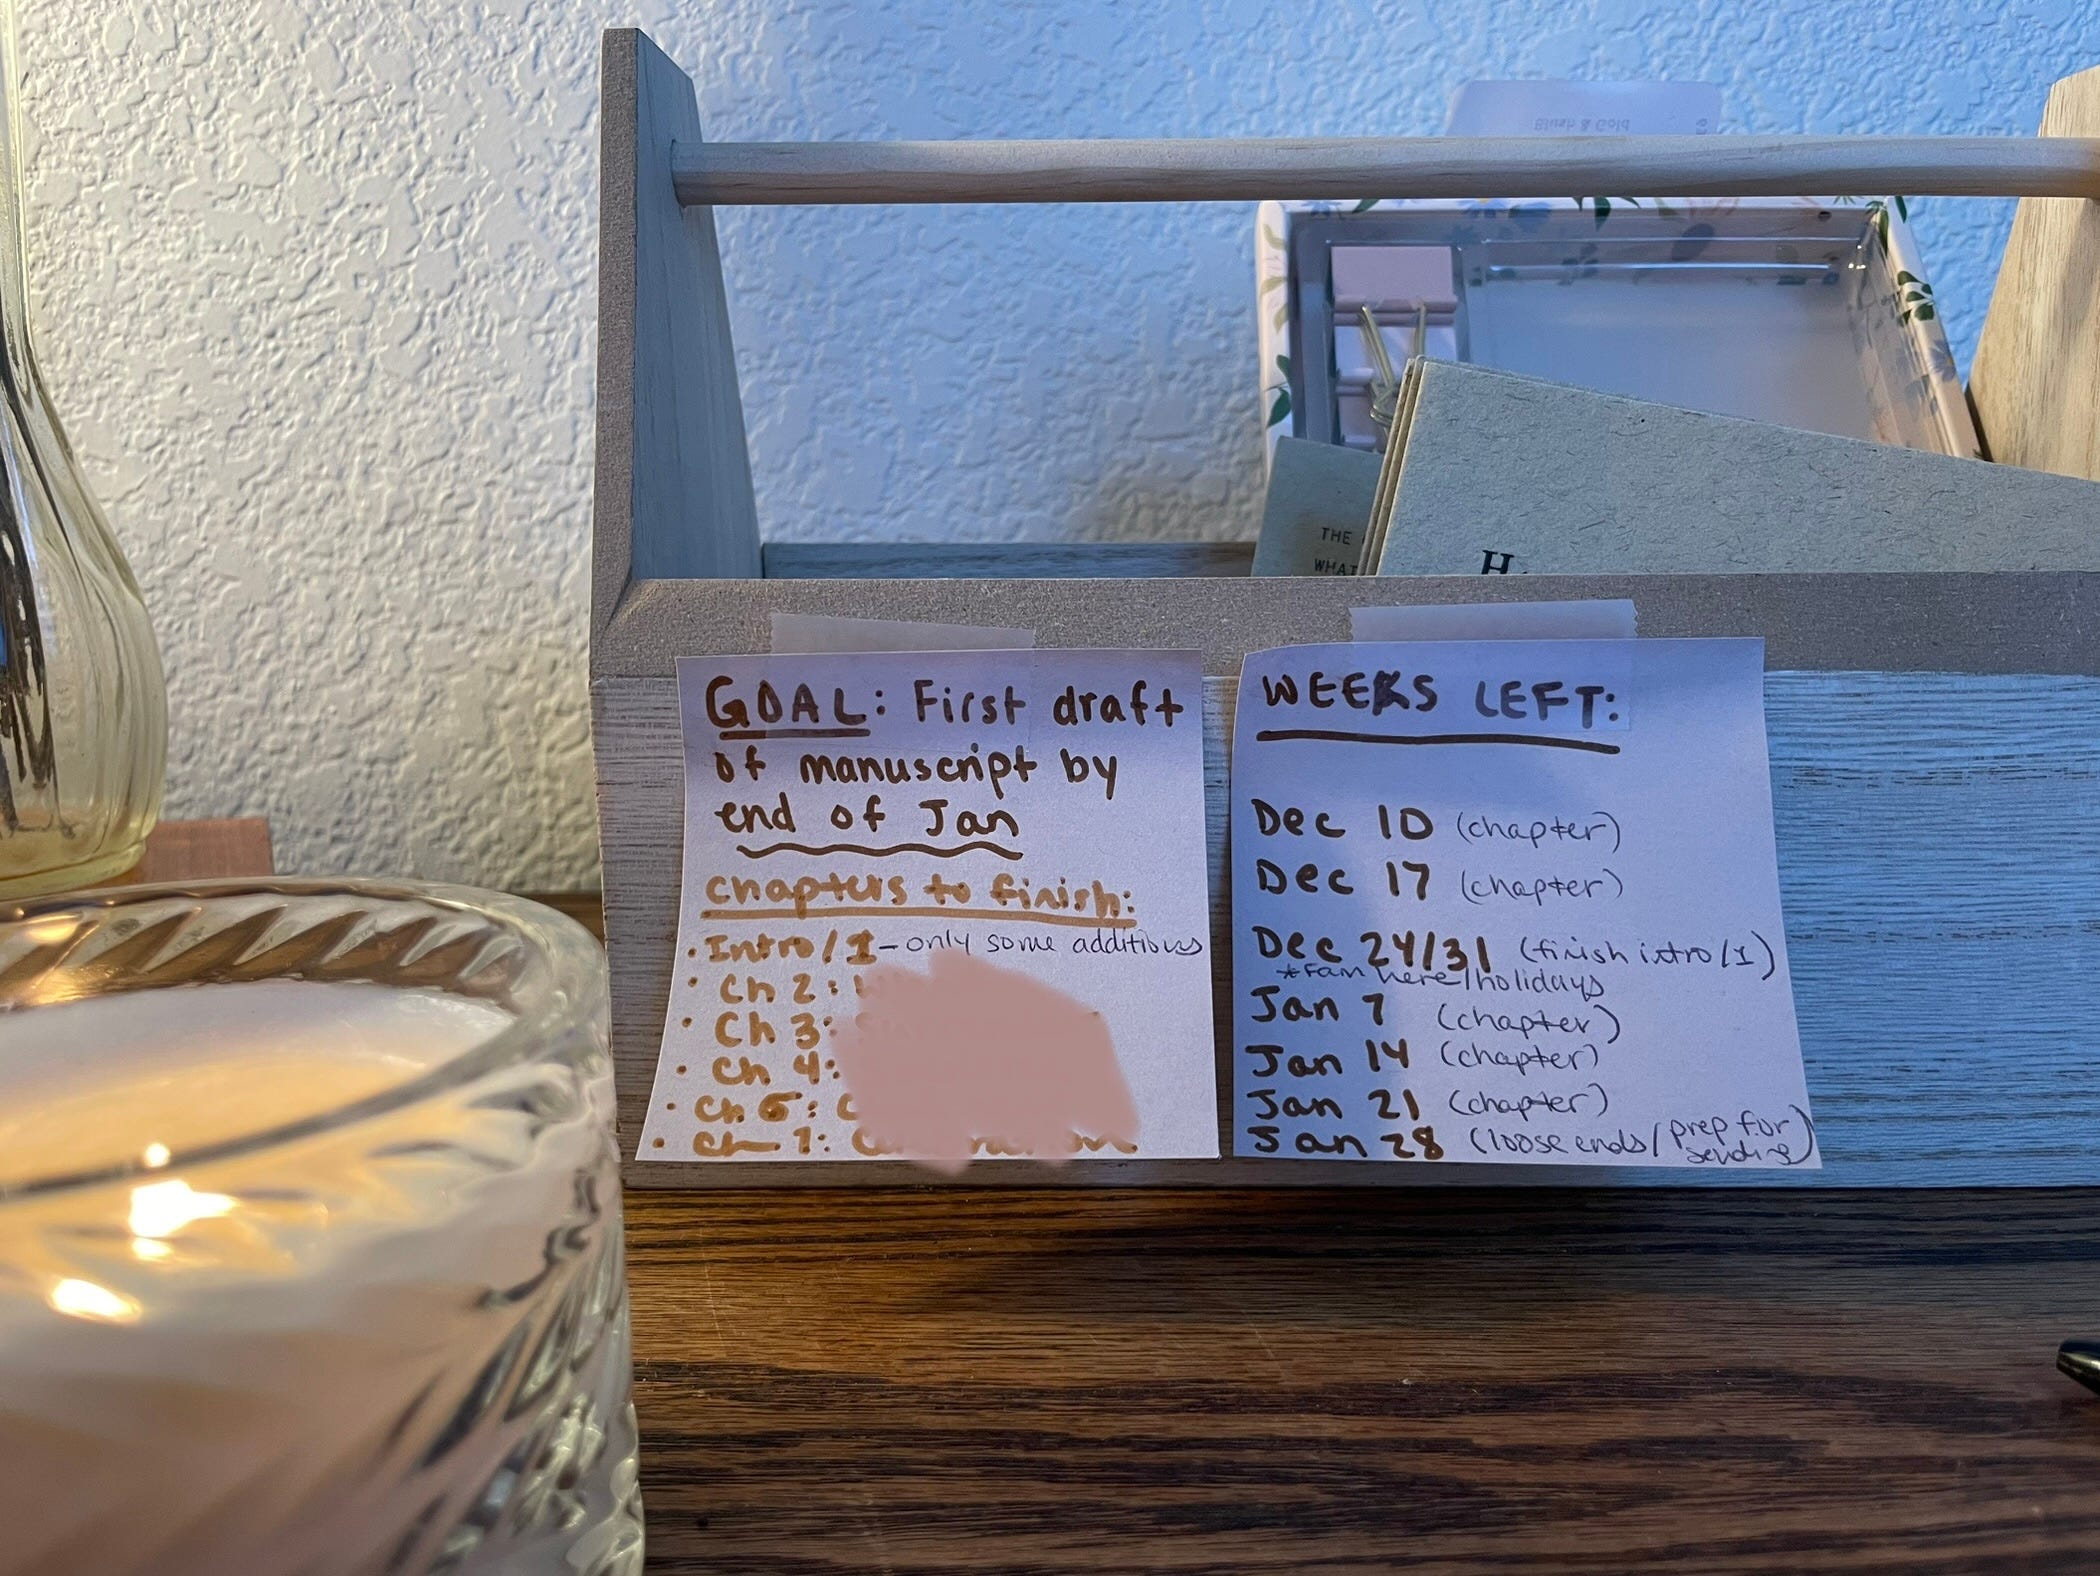 Blush & Gold
THE
WHAT
H
GOAL: First draft
of manuscript by
end of Jan
chapters to finish:
• Intro/1 - only some additions
• Ch 2:
• Ch 3:
• Ch 4:
• Ch 6:
• Ch 7:
WEEKS LEFT:
Dec 10 (chapter)
Dec 17 (chapter)
Dec 24/31 (finish intro/1)
*Fam here/holidays
Jan 7 (chapter)
Jan 14 (chapter)
Jan 21 (chapter)
Jan 28 (loose ends/prep for
sending)